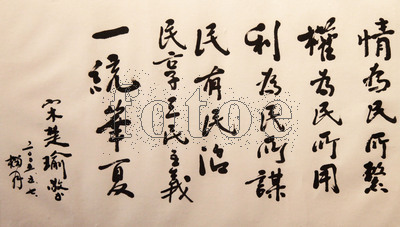 情為民所繫
權為民所用
利為民所謀
民有民治
民享三民主義
一統華夏
宋楚瑜敬
二〇〇五.五.七.
fotoe